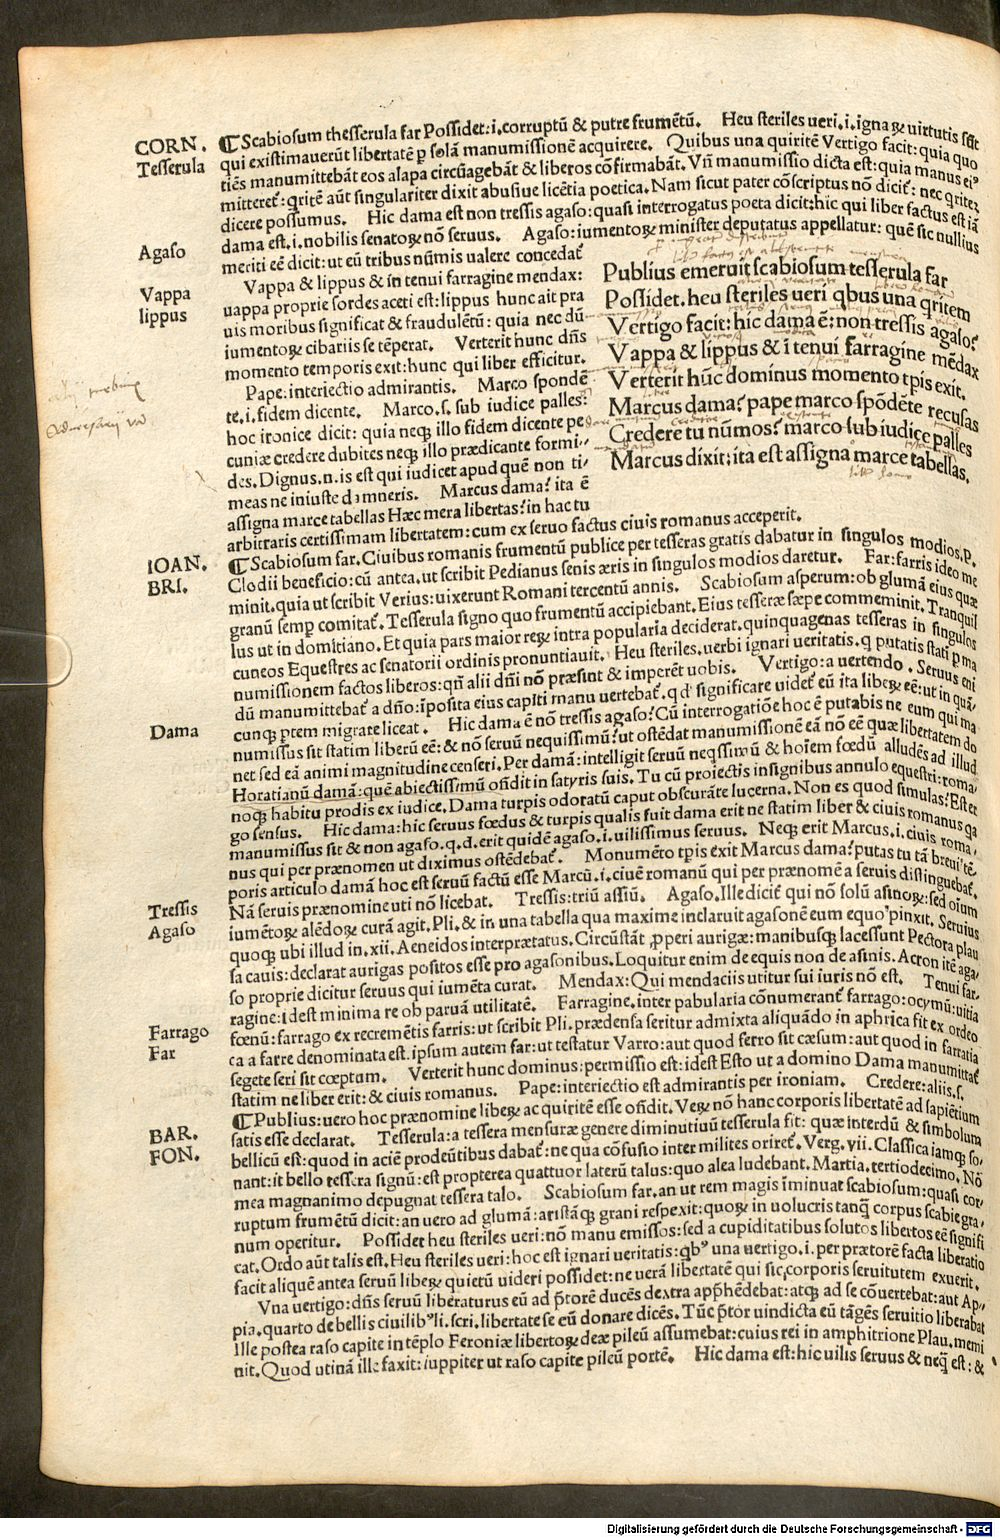 CORN.
Tesserula
¶Scabiosum thesserula far Possidet:i.corruptū & putre frumētū. Heu steriles ueri.i.ignaꝝ uirtutis sūt
qui existimauerūt libertatē ꝑ solā manumissionē acquirere. Quibus una quiritē Vertigo facit: quia quo
tiēs manumittebāt eos alapa circūagebāt & liberos cōfirmabāt. Vn̄ manumissio dicta est: quia manus eiꝰ
mitteret᷑: q̄ritē aūt singulariter dixit abusiue licētia poetica. Nam sicut pater cōscriptus nō dicit᷑: nec q̄ritez
dicere possumus. Hic dama est non tressis agaso: quasi interrogatus poeta dicit:hic qui liber factus est iā
Agaso
dama est.i.nobilis senatoꝝ nō seruus. Agaso:iumentoꝝ minister deputatus appellatur: quē sic nullius
meriti eē dicit: ut eū tribus nūmis ualere concedat
Vappa
lippus
Vappa & lippus & in tenui farragine mendax:
uappa proprie sordes aceti est: lippus hunc ait pra
uis moribus significat & fraudulētū: quia nec dū
iumentoꝝ cibariis se tēperat. Verterit hunc dn̄s
momento temporis exit: hunc qui liber efficitur.
Pape: interiectio admirantis. Marco spondē
te.i.fidem dicente. Marco.s.sub iudice palles:
hoc ironice dicit: quia neq; illo fidem dicente pe
cuniæ credere dubites neq; illo prædicante formi⸗
des. Dignus.n.is est qui iudicet apud quē non ti⸗
meas ne iniuste damneris. Marcus dama? ita ē
assigna marce tabellas Hæc mera libertas? in hac tu
arbitraris certissimam libertatem: cum ex seruo factus ciuis romanus acceperit.
Publius emeruit scabiosum tesserula far
Possidet.heu steriles ueri qbus una qritem
Vertigo facit: hic dama ē: non tressis agaso?
Vappa & lippus & ī tenui farragine mēdax
Verterit hūc dominus momento tpis exit.
Marcus dama? pape marco spōdēte recusas
Credere tu nūmos? marco sub iudice palles
Marcus dixit: ita est assigna marce tabellas.
IOAN.
BRI.
¶Scabiosum far. Ciuibus romanis frumentū publice per tesseras gratis dabatur in singulos modios.P.
Clodii beneficio: cū antea.ut scribit Pedianus senis æris in singulos modios daretur. Far:farris ideo me
minit.quia ut scribit Verius:uixerunt Romani tercentū annis. Scabiosum asperum: ob glumā eius quæ
granū semp comitat᷑. Tesserula signo quo frumentū accipiebant. Eius tesseræ sæpe commeminit. Tranquil
lus ut in domitiano. Et quia pars maior reꝝ intra popularia deciderat.quinquagenas tesseras in singulos
cuneos Equestres ac senatorii ordinis pronuntiauit. Heu steriles.uerbi ignari ueritatis. q putatis stati p ma
numissionem factos liberos: qn̄ alii dn̄i nō præsint & imperēt uobis. Vertigo: a uertendo. Seruus eni
dū manumittebat᷑ a dn̄o: īposita eius capiti manu uertebat᷑.q d significare uidet᷑ eū ita libeꝝ eē: ut in quā⸗
Dama
cunq; ptem migrare liceat. Hic dama ē nō tressis agaso? Cū interrogatiōe hoc ē putabis ne eum qui ma
numissus sit statim liberū eē: & nō seruū nequissimū? ut ostēdat manumissionē eā nō eē quæ libertatem do
net sed eā animi magnitudine censeri. Per damā: intelligit seruū neqssimū & hoīem fœdū alludēs ad illud
Horatianū damā: quē abiectissimū ofidit in satyris suis. Tu cū proiectis insignibus annulo equestri: roma⸗
noq; habitu prodis ex iudice. Dama turpis odoratū caput obscurāte lucerna. Non es quod simulas? Est er
go sensus. Hic dama: hic seruus fœdus & turpis qualis fuit dama erit ne statim liber & ciuis romanus qa
manumissus sit & non agaso.q.d.erit quidē agaso.i.uilissimus seruus. Neq; erit Marcus.i.ciuis roma⸗
nus qui per prænomen ut diximus ostēdebat᷑. Monumēto tpis exit Marcus dama? putas tu tā breui tē⸗
poris articulo damā hoc est seruū factū esse Marcū.i.ciuē romanū qui per prænomē a seruis distinguebat᷑.
Tressis
Agaso
Nā seruis prænomine uti nō licebat. Tressis: triū assiū. Agaso. Ille dicit᷑ qui nō solū asinoꝝ: sed oīum
iumētoꝝ alēdoꝝ curā agit. Pli. & in una tabella qua maxime inclaruit agasonē eum equoꝰ pinxit. Seruius
quoq; ubi illud in.xii. Aeneidos interprætatus. Circūstāt ꝓperi aurigæ: manibusq; lacessunt Pectora plau
sa cauis: declarat aurigas positos esse pro agasonibus. Loquitur enim de equis non de asinis. Acron itē aga⸗
so proprie dicitur seruus qui iumēta curat. Mendax: Qui mendaciis utitur sui iuris nō est. Tenui far⸗
ragine: idest minima re ob paruā utilitatē. Farragine. inter pabularia cōnumerant᷑ farrago: ocymū: uitia
Farrago
Far
fœnū: farrago ex recremētis farris: ut scribit Pli. prædensa seritur admixta aliquādo in aphrica fit ex ordeo
ca a farre denominata est. ipsum autem far: ut testatur Varro: aut quod ferro sit cæsum: aut quod in farratia
segete seri sit cœptum. Verterit hunc dominus: permissio est: idest Esto ut a domino Dama manumittat᷑
statim ne liber erit: & ciuis romanus. Pape: interiectio est admirantis per ironiam. Credere: aliis.s.
BAR.
FON.
¶Publius: uero hoc prænomine libeꝝ ac quiritē esse ofidit. Veꝝ nō hanc corporis libertatē ad sapiētium
satis esse declarat. Tesserula: a tessera mensuræ genere diminutiuū tesserula fit: quæ interdū & simbolum
bellicū est: quod in aciē prodeūtibus dabat᷑: ne qua cōfusio inter milites oriret᷑. Verg. vii. Classica iamq; so⸗
nant: it bello tessera signū: est propterea quattuor laterū talus: quo alea ludebant. Martia. tertiodecimo. Nō
mea magnanimo depugnat tessera talo. Scabiosum far. an ut rem magis īminuat scabiosum: quasi cor⸗
ruptum frumētū dicit: an uero ad glumā: aristāq; grani respexit: quoꝝ in uolucris tanq̄ corpus scabie gra⸗
num operitur. Possidet heu steriles ueri: nō manu emissos: sed a cupiditatibus solutos libertos eē signifi
cat. Ordo aūt talis est. Heu steriles ueri: hoc est ignari ueritatis: qbꝰ una uertigo.i. per prætorē facta liberatio
facit aliquē antea seruū libeꝝ quietū uideri possidet: ne uerā libertatē qui sic corporis seruitutem exuerit.
Vna uertigo: dn̄s seruū liberaturus eū ad p̄torē ducēs dextra app̄hēdebat: atq; ad se cōuertebat: aut Ap⸗
pia. quarto de bellis ciuilibꝰ li. scri. libertate se eū donare dicēs. Tūc p̄tor uindicta eū tāgēs seruitio liberabat
Ille postea raso capite in tēplo Feroniæ libertoꝝ deæ pileū assumebat: cuius rei in amphitrione Plau. memi
nit. Quod utinā ille faxit: iuppiter ut raso capite pileū portē. Hic dama est: hic uilis seruus & neq̄ est: &
Digitalisierung gefördert durch die Deutsche Forschungsgemeinschaft - DFG